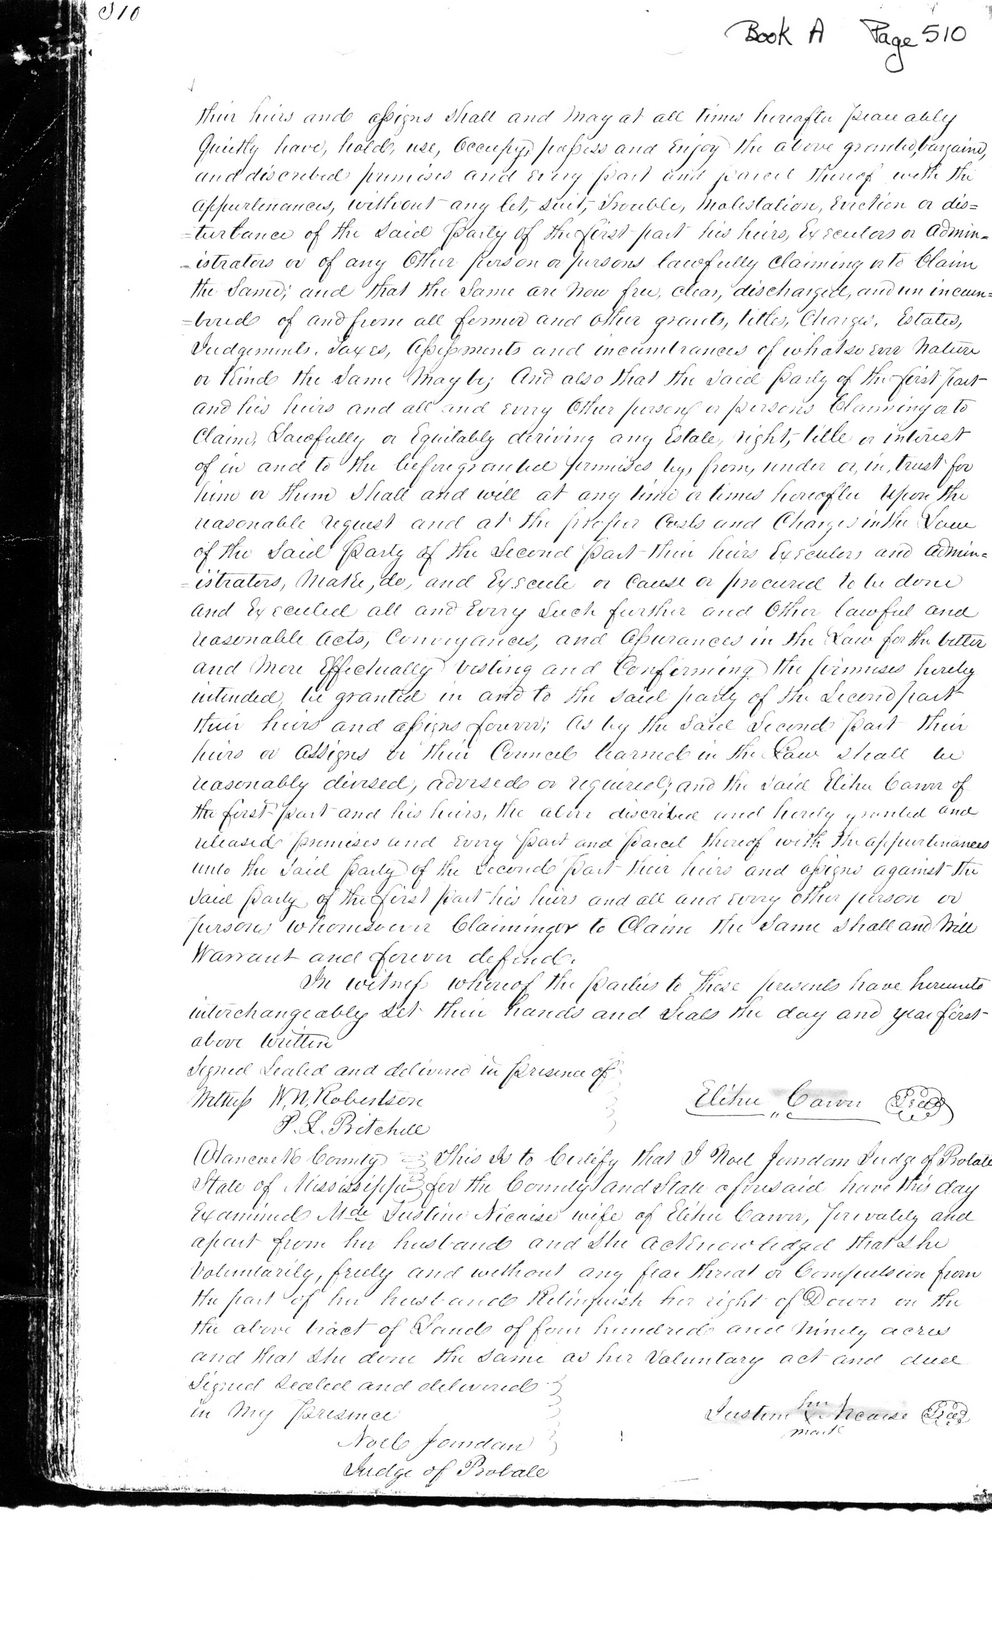 510
Book A Page 510
their heirs and assigns shall and may at all times hereafter peaceably
Quietly have, hold, use, occupy, possess and Enjoy the above granted, bargained,
and discribed premises and Every part and parcel thereof with the
appurtinances, without any let, suit, trouble, molestation, Eviction or dis=
=turbance of the said party of the first part his heirs, Executors or admin=
=istrators or of any Other person or persons lawfully claiming or to Claim
the Same; and that the Same are Now free, clear, discharged, and unincum=
=bered of and from all former and other grants, titles, Charges, Estates,
Judgements, Taxes, Assessments and incumbrances of whatsoever Nature
or Kind the Same May be; And also that the said party of the first part
and his heirs and all and every Other person or persons Claiming or to
Claim, Lawfully or Equitably deriving any Estate, right, title or interest
of in and to the before granted premises by, from, under or, in, trust for
him or them shall and will at any time or times hereafter Upon the
reasonable request and at the proper Costs and Charges in the Law
of the Said party of the Second part their heirs Executors and admin=
=istrators, Make, do, and Execute or cause or procured to be done
and Executed all and Every Such further and Other lawful and
reasonable acts, Conveyances, and Assurances in the Law for the better
and More Effectually vesting and Confirming the premises hereby
intended, be granted in and to the said party of the Second part
their heirs and assigns forever; As by the said Second part their
heirs or Assigns or their Council learned in the Law shall be
reasonably divised, advised or required; and the said Elihu Carver of
the first part and his heirs, the above discribed and hereby granted and
released premises and Every part and parcel thereof with the appurtinances
unto the Said party of the Second part their heirs and assigns against the
said party of the first part his heirs and all and every other person or
persons whomsoever Claiming or to Claim the Same Shall and Will
Warrant and forever defend.
In witness whereof the parties to these presents have hereunto
interchangeably set their hands and seals the day and year first
above Written
Signed Sealed and delivered in presence of
Witness W. N. Robertson
P. L. Bitchell
Elihu Carver Seal
Hancock County This is to Certify that I Noel Jourdan Judge of Probate
State of Mississippi for the County and State aforesaid have this day
Examined Mde Justine Nicaise wife of Elihu Carver, privately and
apart from her husband and she acknowledged that she
Voluntarily, freely and without any fear threat or Compulsion from
the part of her husband Relinquish her right of Dower on the
the above tract of Land of four hundred and Ninety acres
and that she done the same as her Voluntary act and deed
Signed Sealed and delivered
in My presence
Noel Jourdan
Judge of Probate
Justine her X Nicaise Seal
mark